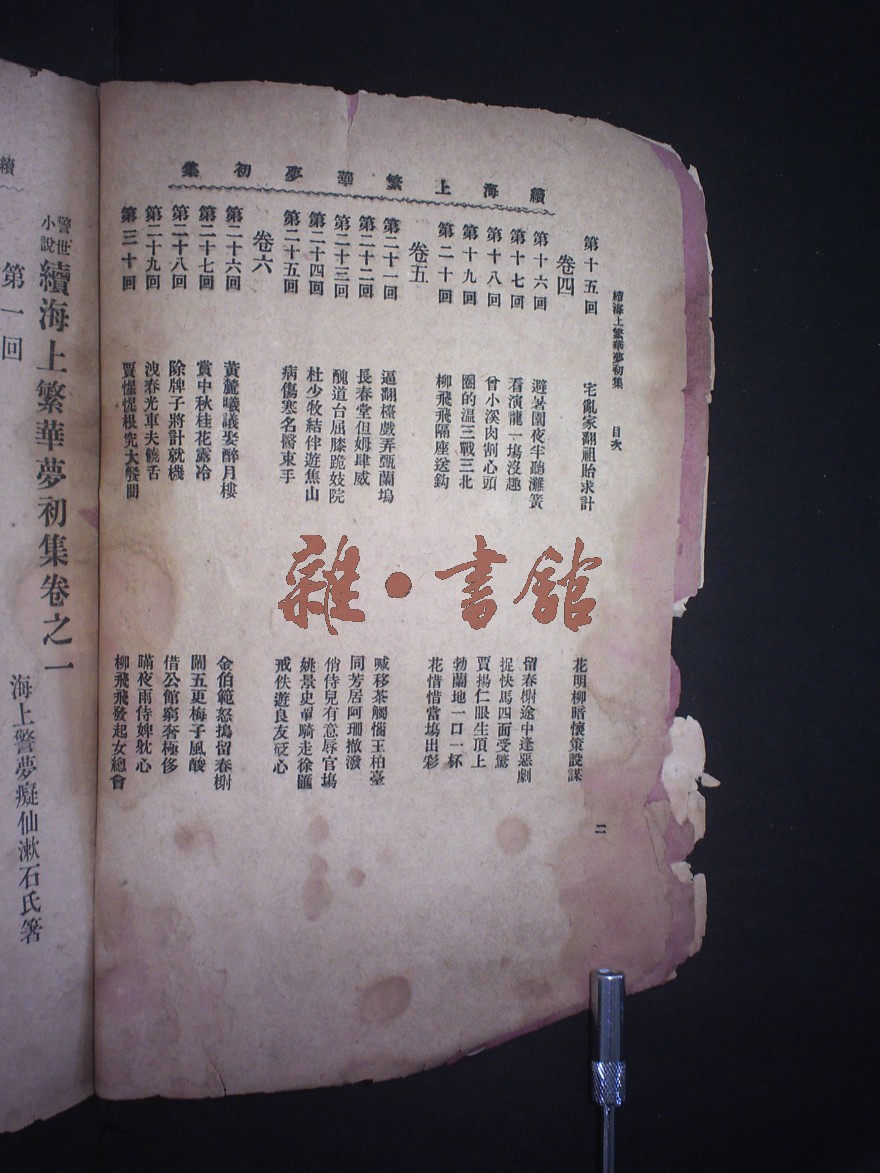 續海上繁華夢初集
續海上繁華夢初集 目次 二
第十五回 宅亂家翻祖貽求計 花明柳暗懷策設謀
卷四
第十六回 避暑園夜半聽灘簧 留春榭途中逢惡劇
第十七回 看演龍一塲沒趣 捉快馬四面受驚
第十八回 曾小溪肉割心頭 賈揚仁眼生頂上
第十九回 圈的溫三戰三北 勃蘭地一口一杯
第二十回 柳飛飛隔座送鈎 花惜惜當塲出彩
卷五
第二十一回 逼翻檯戲弄甄蘭塢 喊移茶觸惱王柏臺
第二十二回 長春堂但姆肆威 同芳居阿珊撒潑
第二十三回 醜道台屈膝跪妓院 俏侍兒有意辱官塲
第二十四回 杜少牧結伴遊焦山 姚景史單騎走徐匯
第二十五回 病傷寒名醫束手 戒佚遊良友砭心
卷六
第二十六回 黃麓曦議娶醉月樓 金伯範怒搗留春榭
第二十七回 賞中秋桂花露冷 鬧五更梅子風酸
第二十八回 除牌子將計就機 借公館窮奢極侈
第二十九回 洩春光車夫饒舌 瞞夜雨侍婢躭心
第三十回 賈惺惺根究大餐間 柳飛飛發起女總會
雜·書館
續
警世小說續海上繁華夢初集卷之一
海上警夢癡仙漱石氏著
第一回